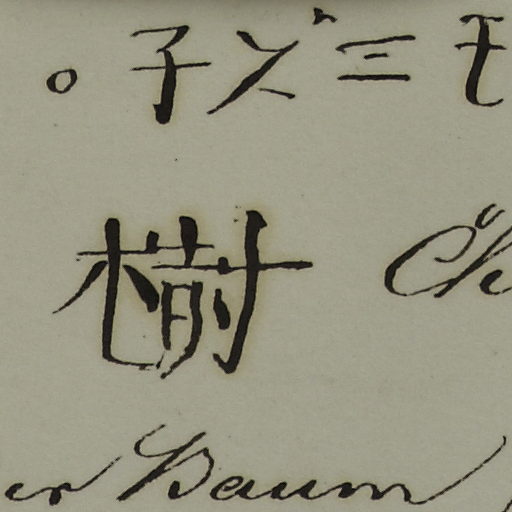 。子ズミモ
樹 Ch
er Baum